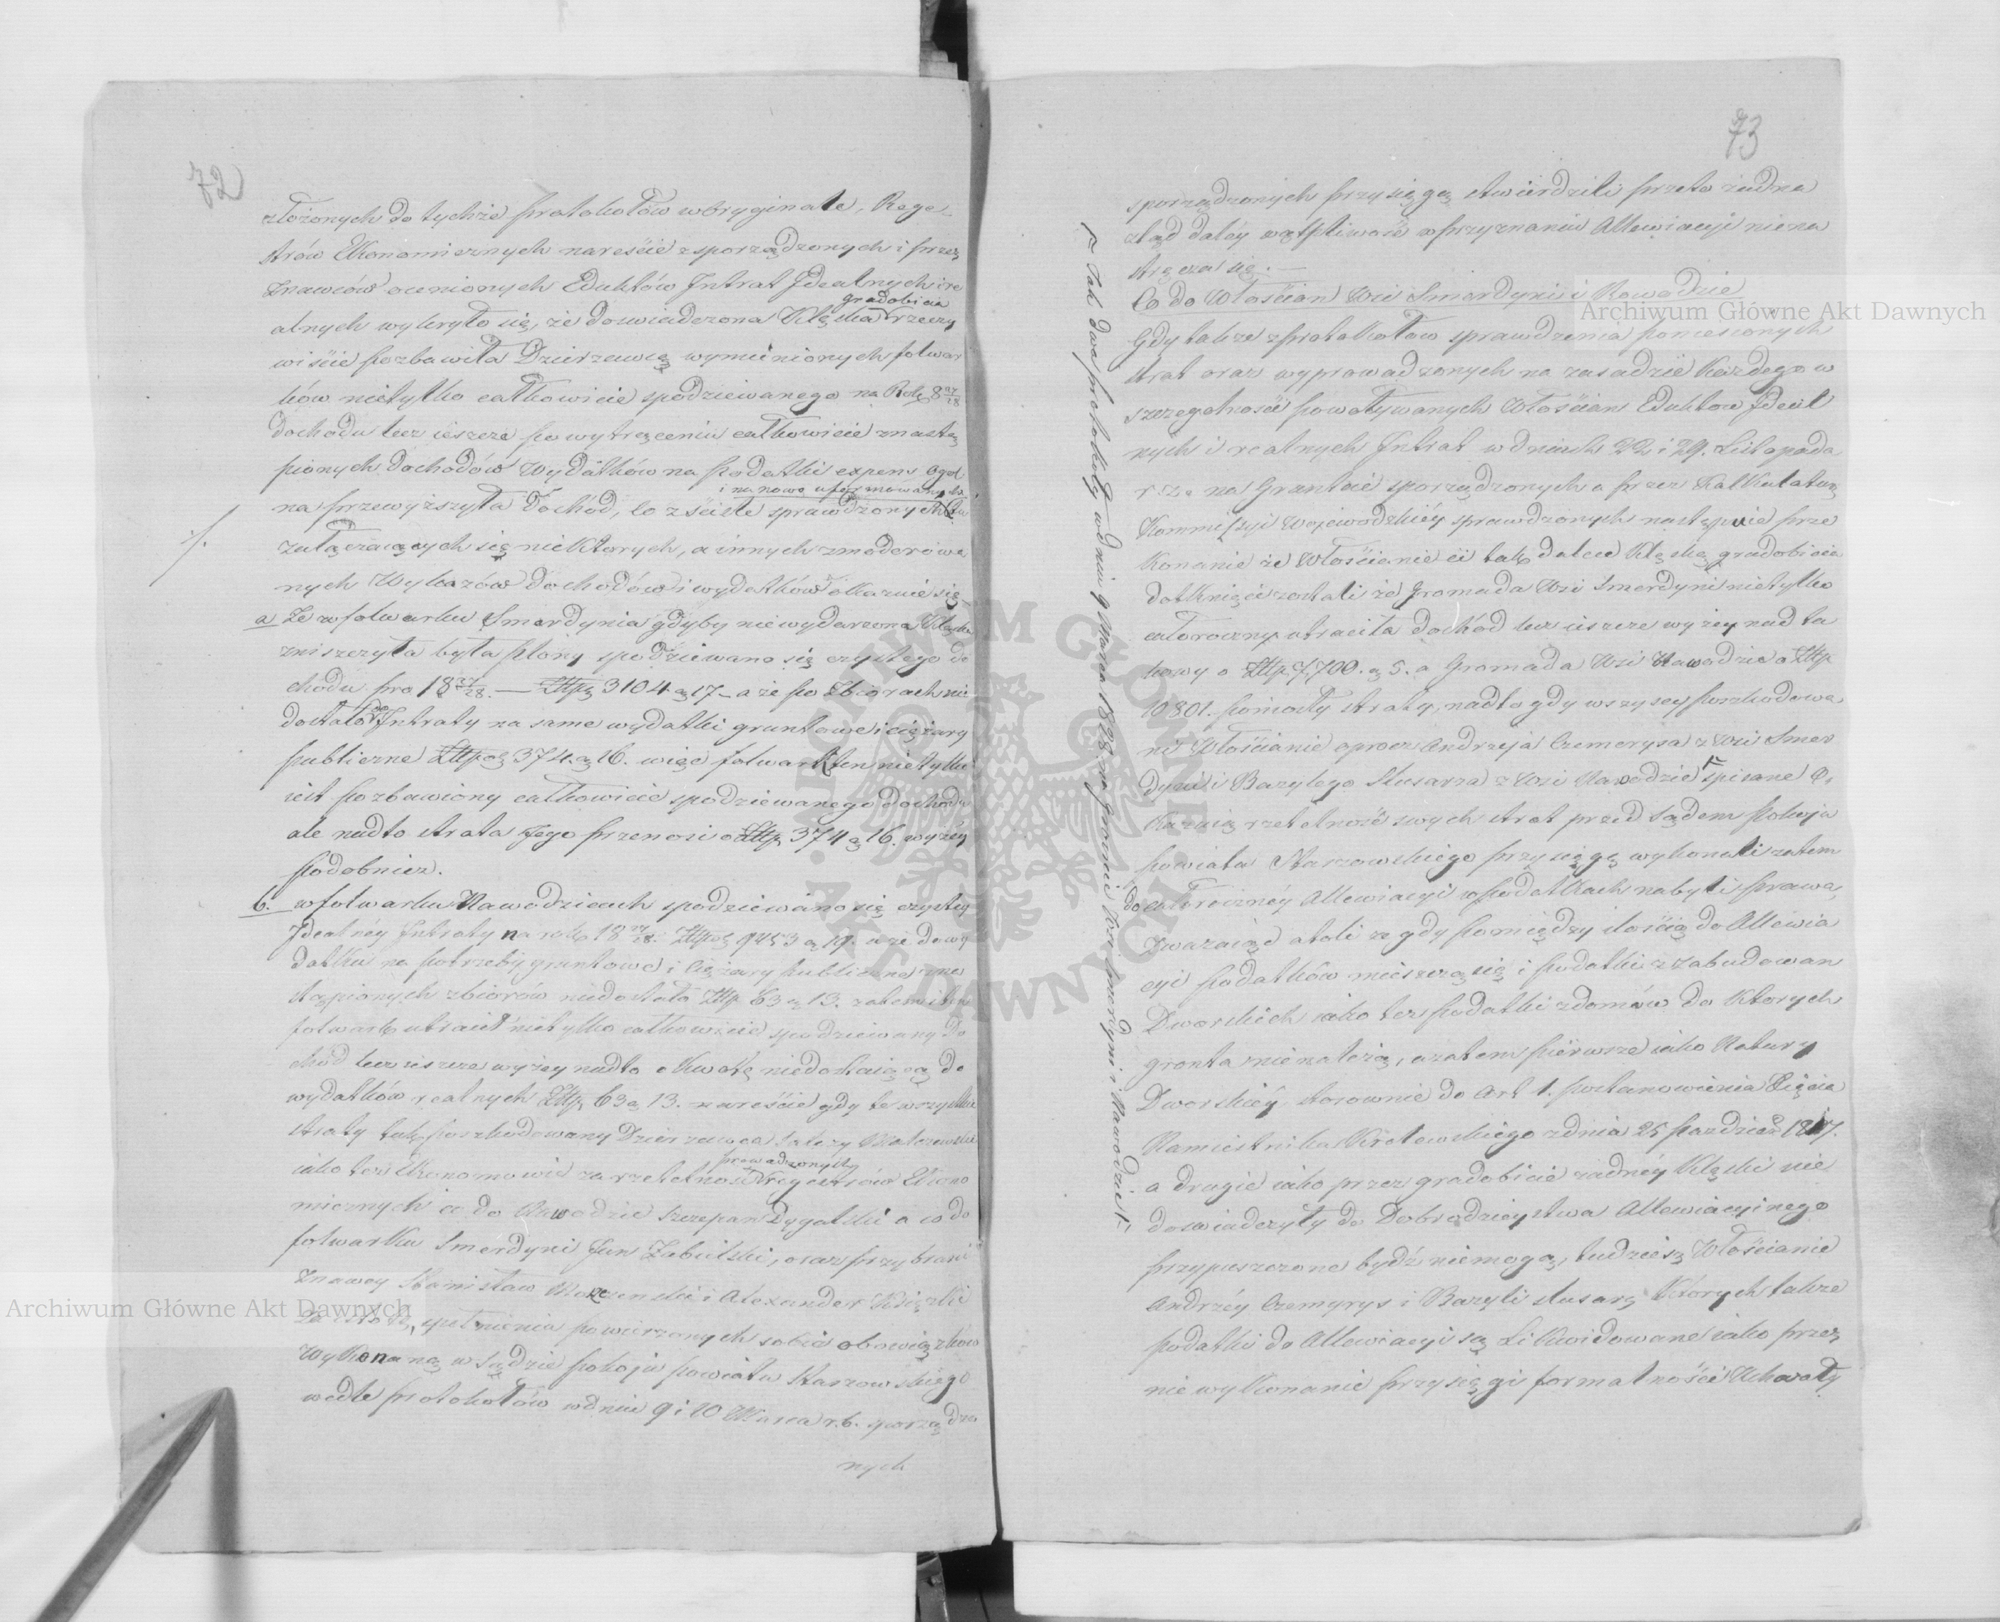 72
złożonych do tychże protokołów w oryginale, Rege-
strów Ekonomicznych nareście sporządzonych i przez
Znawców ocenionych Eduktów Intrat Idealnych i re
alnych wykryło się, że doswiadczona Klęska gradobicia rzeczy
wiście pozbawiła Dzierzawcę wymienionych folwar
ków nietylko całkowicie spodziewanego na Rok 8 27/28
dochodu lecz ieszcze po wytrąceniu całkowicie znastą
pionych dochodów Wydatków na podatki expens ogol
na przewyższyła Dochód, co z ściśle sprawdzonych i na nowo uformowanych
załączaiących się niektorych, a innych zmoderowa
nych Wykazów dochodów i wydatków okazuie się
a Ze w folwarku Smerdynia gdyby nie wydarzona Klęska
zniszczyła była plony spodziewano się czystego do
chodu pro 18 27/28. — Złłp 3104 g 17 — a że po zbiorach nie
dostało do Intraty na same wydatki gruntowe i ciężary
publiczne Złłp 374 g 16. więc folwark ten nietylko
iest pozbawiony całkowicie spodziewanego dochodu
ale nadto strata Jego przenosi o Złłp 374 g 16. wyżéy
podobniez.
b. w folwarku Nawodzicach spodziewano się czystey
Idealnéy Intraty na rok 18 27/28. Złłp 9453 g 19. a że do wy
datku na potrzeby gruntowe i Ciężary publiczne zna
stąpionych zbiorów niedostało Złłp 63 g 13. zatem i ten
folwark utracił nietylko całkowicie spodziewany do
chód lecz ieszcze wyżey nadto o Kwotę niedostaiącą do
wydatków realnych Złłp 63 g 13. nareście gdy te wszystkie
straty tak poszkodowany Dzierzawca Jakoteż
iako też Ekonomowie za rzetelność prowadzonych regestrów Ekono
micznych co do Nawodzic Szczepan Dygalski a co do
folwarku Smerdyni Jan Zabielski, oraz przybrani
Znawcy Stanisław i Alexander
spełnienia powierzonych sobie obowiązków
Wykonaną w Sądzie Pokoju powiatu Staszowskiego
wedle protokołów w dniu 9 i 10 Marca r.b. sporządzo
nych
73
sporządzonych przysięgą stwierdzili przeto żadna
ztąd daléy wątpliwość w przyznaniu Allewiacyi niena
stręcza się. —
Co do Włościan Wsi Smerdyni i Nawodzic
Gdy także z protokołów sprawdzenia poniesionych
strat oraz wyprowadzonych na zasadzie Każdego w
szczegolności powoływanych Włościan Eduktow Ideal
nych i realnych Intrat w dniach 22 i 29. Listopada
r. z. na Gruncie sporządzonych a przez Kalkulaturę
Kommissyi Woiewodzkiéy sprawdzonych następuie prze
konanie że Włościanie ci tak dalece Klęską gradobicia
dotknięci zostali że Gromada Wsi Smerdyni nietylko
całoroczny utraciła dochód lecz ieszcze wyżey nad ta
kowy o Złłp 7,700. g 5. a Gromada Wsi Nawodzic o Złłp
10801. poniosły straty, nadto gdy wszyscy poszkodowa
ni Włościanie oprocz Andrzeja Czemerysa z Wsi Smer
dyni i Bazylego Slusarza z Wsi Nawodzic spisane o
kazuią rzetelność swych strat przed Sądem Pokoju
powiatu Staszowskiego przysięgę wykonali zatem
do całoroczney Allewiacyi w podatkach nabyli prawa,
Zważaiąc atoli że gdy pomiędzy ilością do Allewia
cyi podatków mieszczą się i podatki z zabudowan
Dworskich iako tez podatki z domów do Ktorych
gronta nie należą, a zatem pierwsze iako Natury
Dworskiéy stosownie do Art 1. postanowienia Xięcia
Namiestnika Królewskiego z dnia 25 Paździer 1817.
a drugie iako przez gradobicie żadnéy Klęski nie
doswiadczyły do Dobrodzieystwa Allewiacyinego
przypuszczone bydź niemogą, tudziesz Włościanie
Andrzéy Czemyrys i Bazyli slusarz Których także
podatki do Allewiacyi są Likwidowane iako przez
nie wykonanie przysięgi formalności Uchwały
Tak dwa protokoły w dniu 9 Marca 1828 na gruncie Wsi Smerdyni i Nawodzic
Archiwum Główne Akt Dawnych
Archiwum Główne Akt Dawnych
ARCHIWUM GŁÓWNE AKT DAWNYCH